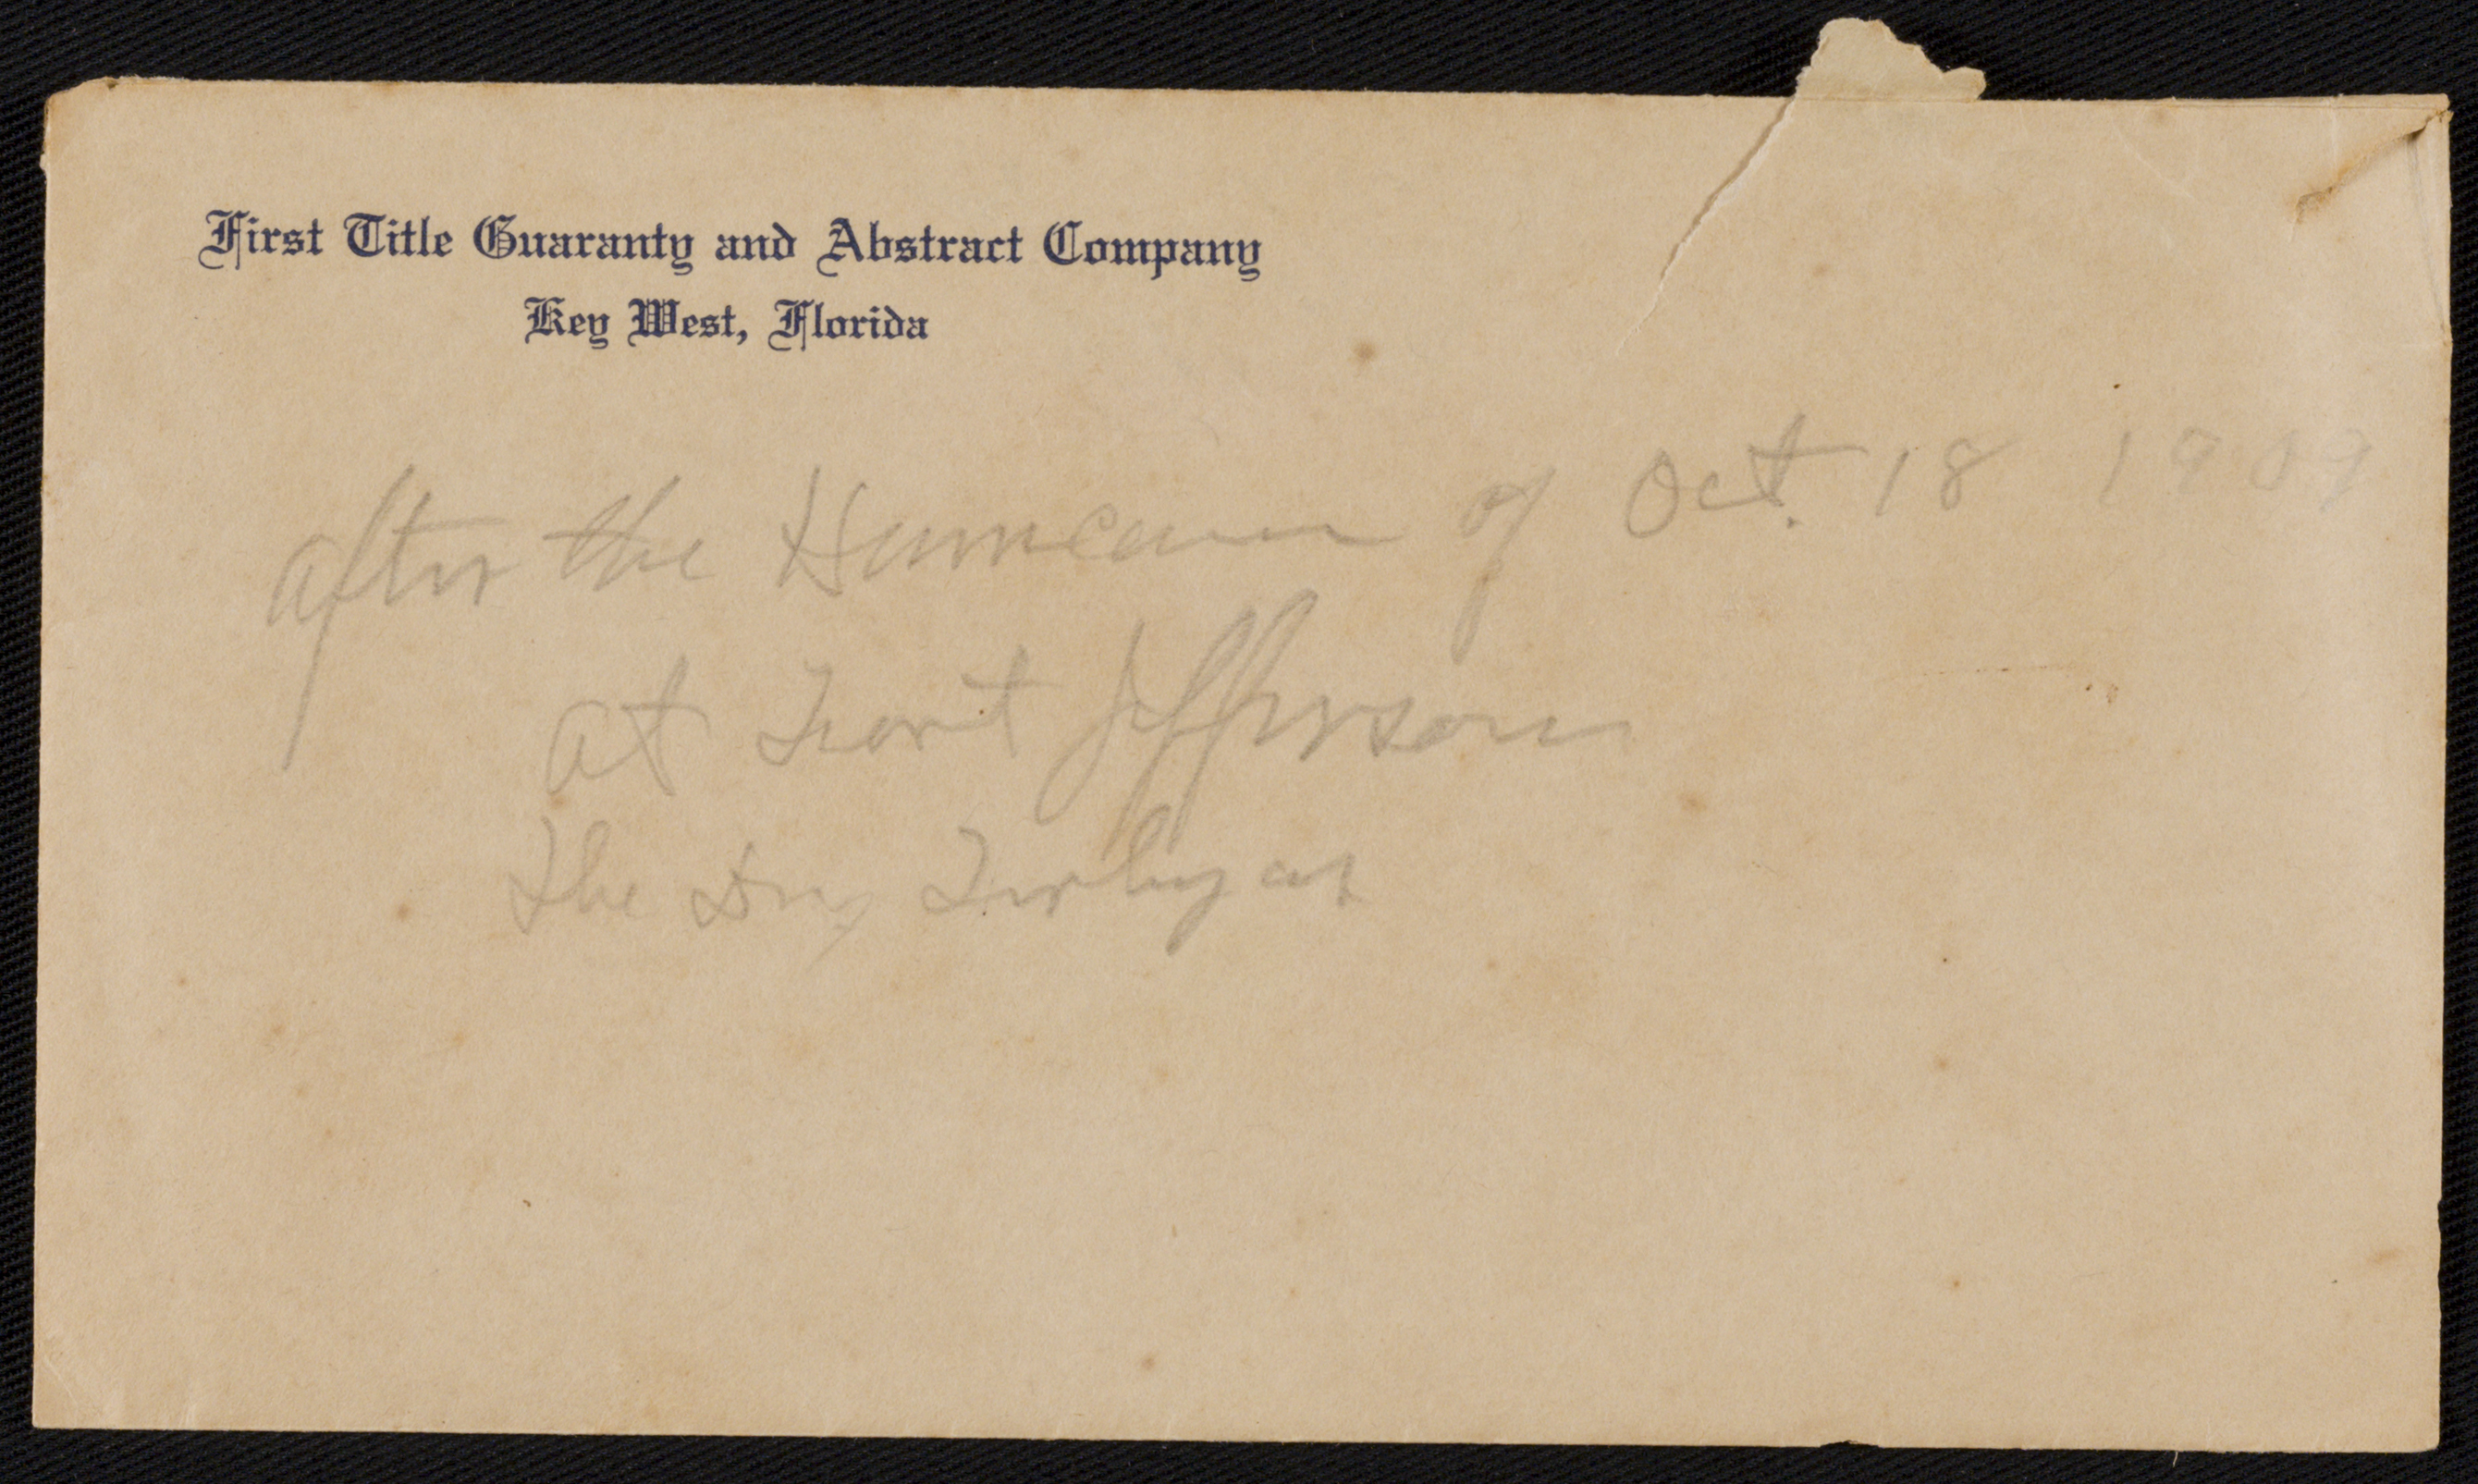 First Title Guaranty and Abstract Company
Key West, Florida
after the Hurricane of Oct. 18 1909
at Fort Jefferson
The Dry Tortugas